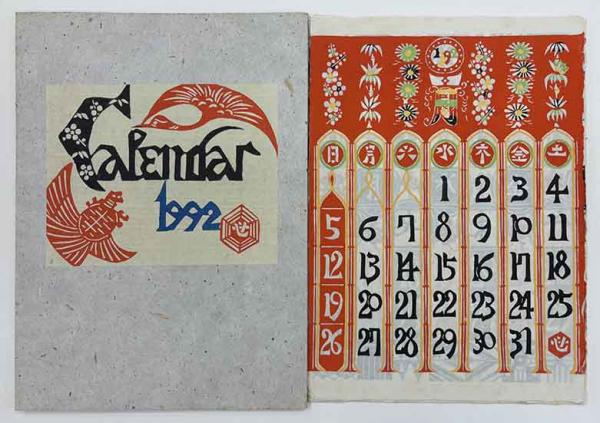 Calendar
1992
日 月 火 水 木 金 土
1 2 3 4
5 6 7 8 9 10 11
12 13 14 15 16 17 18
19 20 21 22 23 24 25
26 27 28 29 30 31